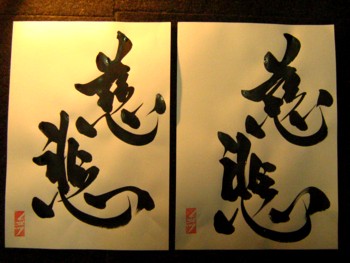 慈悲
慈悲